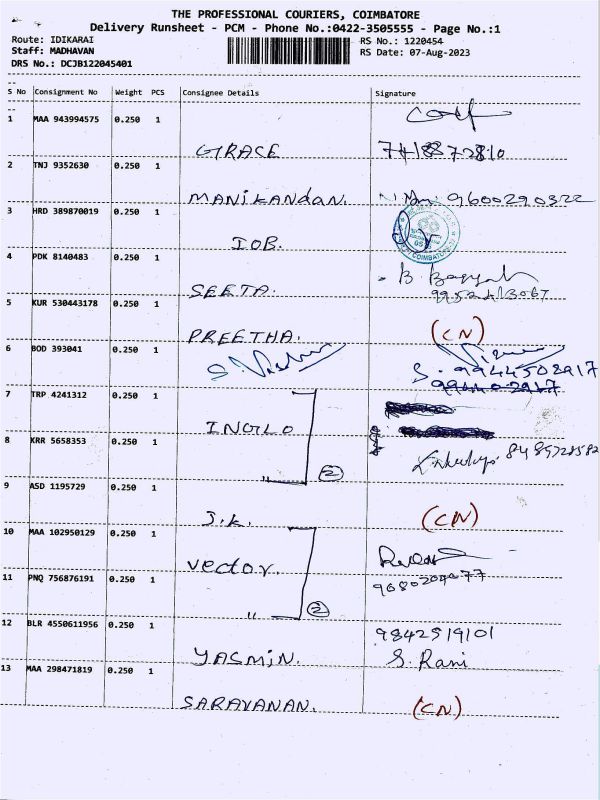 THE PROFESSIONAL COURIERS, COIMBATORE
Delivery Runsheet - PCM - Phone No.:0422-3505555 - Page No.:1
Route: IDIKARAI RS No.: 1220454
Staff: MADHAVAN RS Date: 07-Aug-2023
DRS No.: DCJB122045401
S No Consignment No Weight PCS Consignee Details Signature
1 MAA 943994575 0.250 1
GRACE
2 TNJ 9352630 0.250 1
MANIKANDAN. 9600290322
3 HRD 389870019 0.250 1
IOB.
4 PDK 8140483 0.250 1
SEETA.
5 KUR 530443178 0.250 1
PREETHA. (CN)
6 BOD 393041 0.250 1
S. 9944508917
7 TRP 4241312 0.250 1
INGLO
8 KRR 5658353 0.250 1
" 2 8489728582
9 ASD 1195729 0.250 1
J.K. (CN)
10 MAA 102950129 0.250 1
vector.
11 PNQ 756876191 0.250 1
" 2
12 BLR 4550611956 0.250 1 9842519101
YASMIN. S. Rani
13 MAA 298471819 0.250 1
SARAVANAN. (CN)